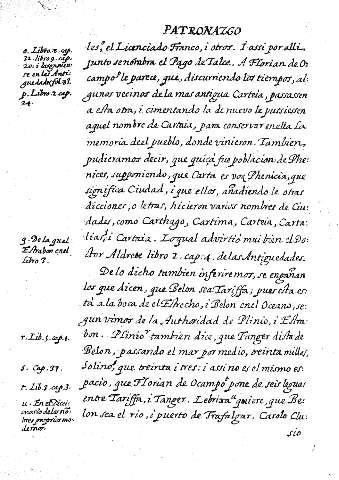 PATRONAZGO
les, el Lianciado Franco, i otros. I assi por alli
junto se nombra el Pago de Talce. A Florian de O-
campo le parece, que, discurriendo los tiempos, al-
gunos vecinos de la mas antigua Carteia, passasen
a esta otra, i cimentando la de nuevo le pussiesen
aquel nombre de Carteia, para conservar en ella la
memoria del pueblo, donde vinieron. Tambien,
pudieramos decir, que quiçà fue poblacion de Phe-
nices, suponiendo, que Carta es voz Phenicia, que
significa Ciudad, i que ellos, añadiendo le otras
dicciones, o letras, hicieron varios nombres de Ciu-
dades, como Carthago, Cartima, Carteia, Carta-
lias, i Carteia. Loqual advirtiò mui bien el Do-
ctor Aldrete libro 2. cap. 4. de las Antiguedades.
De lo dicho tambien inferiremos, se engañan
los que dicen, que Belon sea Tariffa; pues esta es-
tà a la boca de el Estrecho, i Belon en el Oceano, se-
gun vimos de la Authoridad de Plinio, i Estra-
bon. Plinio tambien dice, que Tanger dista de
Belon, passando el mar por medio, treinta millas,
Solino, que treinta i tres: i assi no es el mismo es-
pacio, que Florian de Ocampo pone de seis leguas
entre Tariffa, i Tanger. Lebrixa quiere, que Be-
lon sea el rio, i puerto de Trafalgar. Carolo Clu-
sio
o. Libro. 2. cap.
32. libro 9. cap.
20. i largamen-
te en las Anti-
guedades fol.
p. Libro 2 cap
24.
q. De la qual
Estrabon en el
libro 3.
r. Lib. 5. cap. 1.
s. Cap. 37.
t. Lib. 3. cap. 3.
u. En el Dicci-
onario de los nõ-
bres proprios mo-
dernos.